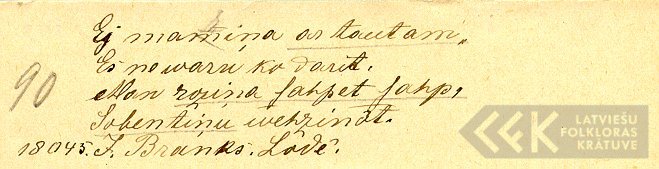 Ej mamiņa ar tautam,
Es newaru ko darit.
90
Man rociņa sahpet sahp,
Sobentiņu wehzinot.
18045. J. Branks. Lôdê.
LATVIEŠU
FOLKLORAS
KRĀTUVE